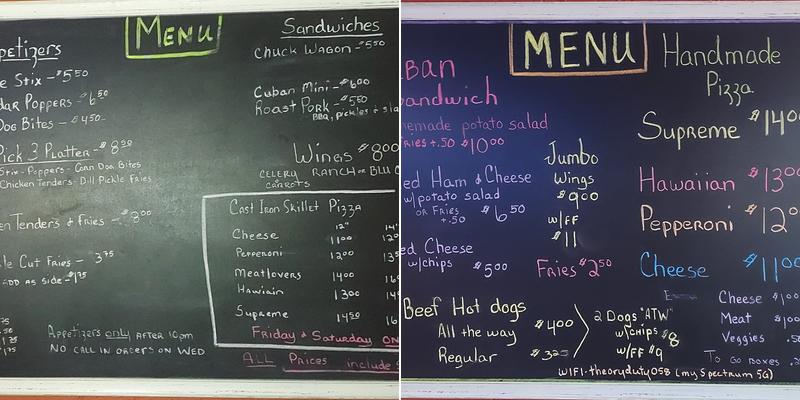 MENU
Sandwiches
Chuck Wagon - $5.50
Stix - $5.50
Poppers - $6.50
Dog Bites - $4.50
Cuban Mini - $6.00
Roast Pork - $5.50
BBQ, pickles &
Pick 3 Platter - $8.50
Stix - Poppers - Corn Dog Bites
Chicken Tenders - Dill Pickle Fries
Wings $8.00
celery carrots
Ranch or Blu
Tenders & Fries - $8.00
Cut Fries - $3.75
Add as side - $1.75
Cast Iron Skillet Pizza
12"
Cheese 11.00
Pepperoni 12.00
Meatlovers 14.00
Hawiain 13.00
Supreme 14.50
Friday & Saturday
ALL Prices include
Appetizers only after 10pm
No call in orders on Wed
MENU
Handmade
Pizza
Supreme $14.00
Hawaiian $13.00
Pepperoni $12.0
Cheese $11.00
potato salad
+.50 $10.00
Ham & Cheese
w/potato salad
or Fries +.50 $6.50
Cheese
w/chips $5.00
Jumbo
Wings
$9.00
w/FF
$11
Fries $2.50
Beef Hot dogs
All the way $4.00
Regular
2 Dogs "ATW"
w/chips $8
w/FF $9
Cheese
Meat
Veggies
To Go boxes
WIFI-theoryduty058 (my Spectrum 5G)